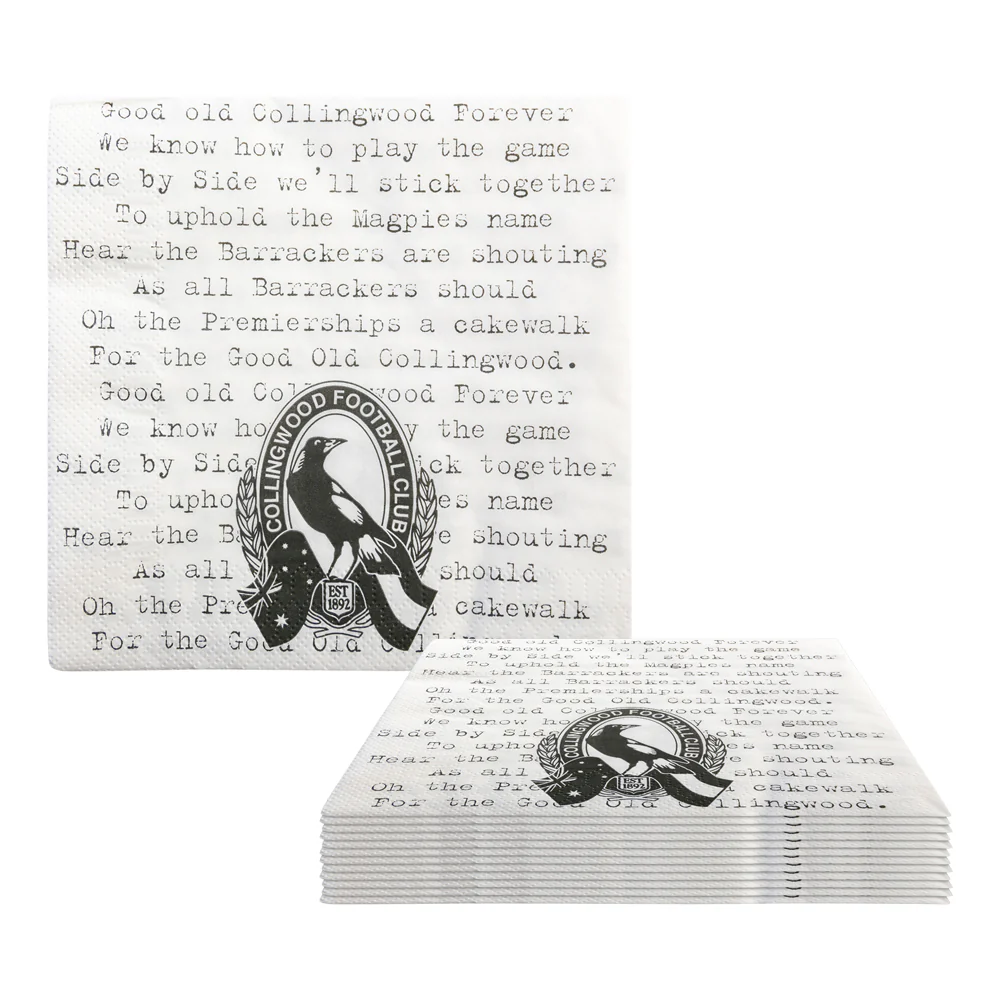 Good old Collingwood Forever
We know how to play the game
Side by Side we'll stick together
To uphold the Magpies name
Hear the Barrackers are shouting
As all Barrackers should
Oh the Premierships a cakewalk
For the Good Old Collingwood.
Good old Co wood Forever
We know ho y the game
Side by Side ick together
To upho es name
Hear the Ba e shouting
As all should
Oh the Pre a cakewalk
For the Good Old Colli
COLLINGWOOD FOOTBALL CLUB
EST
1892
Good old Collingwood Forever
We know how to play the game
Side by Side we'll stick together
To uphold the Magpies name
Hear the Barrackers are shouting
As all Barrackers should
Oh the Premierships a cakewalk
For the Good Old Collingwood.
Good old Co wood Forever
We know ho the game
Side by Side ck together
To upho es name
Hear the Ba e shouting
As all should
Oh the Pre a cakewalk
For the Good Old Collingwood.
COLLINGWOOD FOOTBALL CLUB
EST
1892